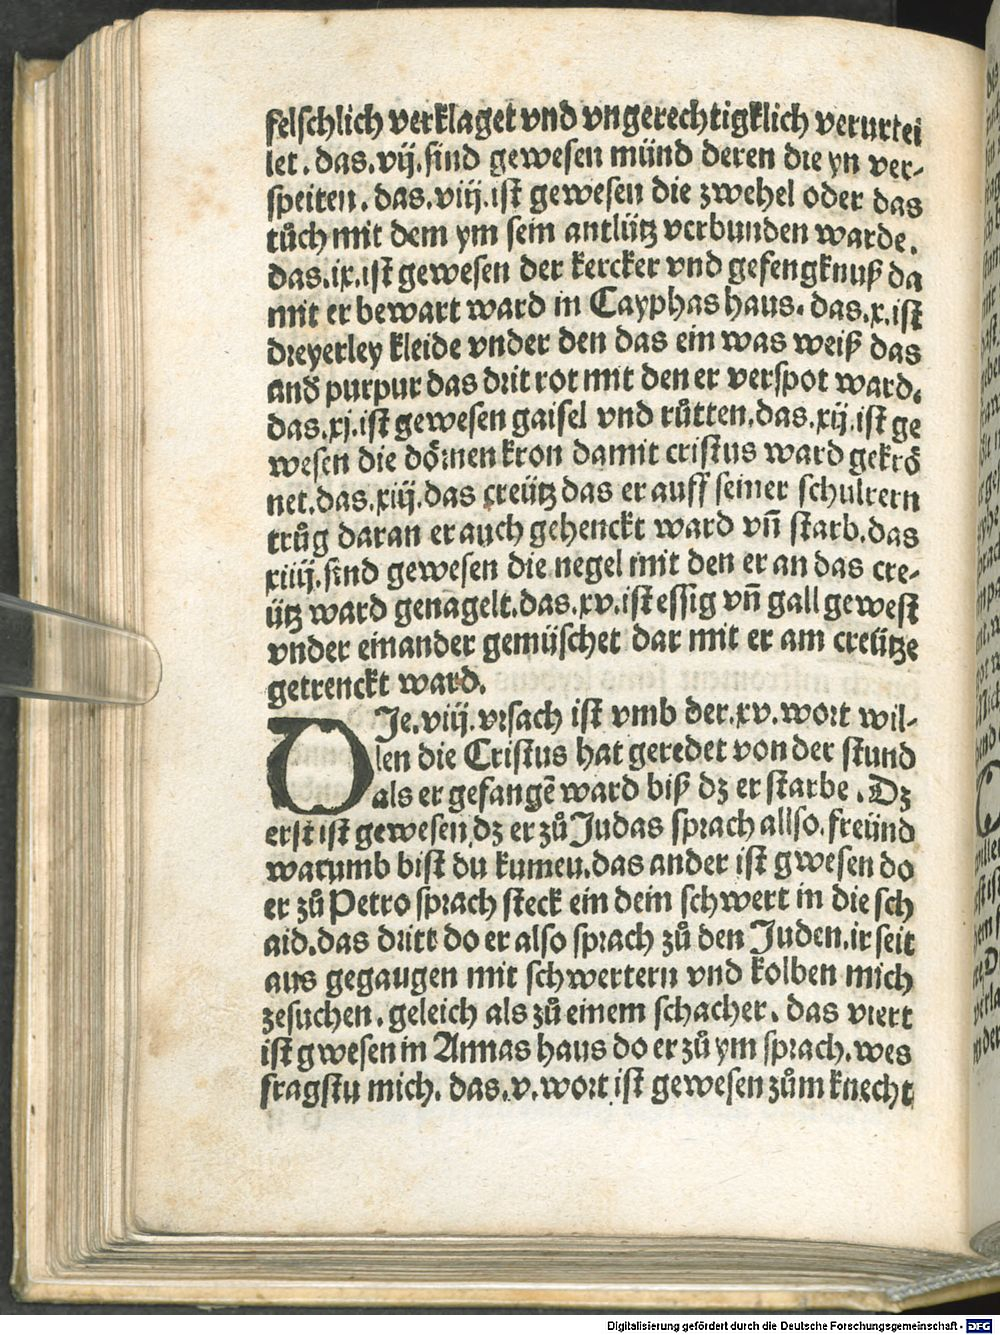 felschlich verklaget vnd vngerechtigklich verurtei
let. das.vij.sind gewesen münd deren die yn ver-
speiten. das.viij.ist gewesen die zwehel oder das
tůch mit dem ym sein antlütz verbunden warde.
das.ix.ist gewesen der kercker vnd gefengknuß da
mit er bewart ward in Cayphas haus. das.x.ist
dreyerley kleide vnder den das ein was weiß das
and̄ purpur das drit rot mit den er verspot ward.
das.xj.ist gewesen gaisel vnd růtten.das.xij.ist ge
wesen die dörnen kron damit cristus ward gekrö
net.das.xiij.das creütz das er auff seiner schultern
trůg daran er auch gehenckt ward vn̄ starb.das
xiiij.sind gewesen die negel mit den er an das cre-
ütz ward genagelt.das.xv.ist essig vn̄ gall gewest
vnder einander gemüschet dar mit er am creütze
getrenckt ward.
DJe.viij.vrsach ist vmb der.xv.wort wil-
len die Cristus hat geredet von der stund
als er gefangē ward biß dz er starbe. Dz
erst ist gewesen dz er zů Judas sprach allso.freünd
warumb bist du kumen.das ander ist gwesen do
er zů Petro sprach steck ein dein schwert in die sch
aid.das dritt do er also sprach zů den Juden.ir seit
aus gegaugen mit schwertern vnd kolben mich
zesuchen.geleich als zů einem schacher. das viert
ist gwesen in Annas haus do er zů ym sprach.wes
fragstu mich. das.v.wort ist gewesen zům knecht
Digitalisierung gefördert durch die Deutsche Forschungsgemeinschaft - DFG